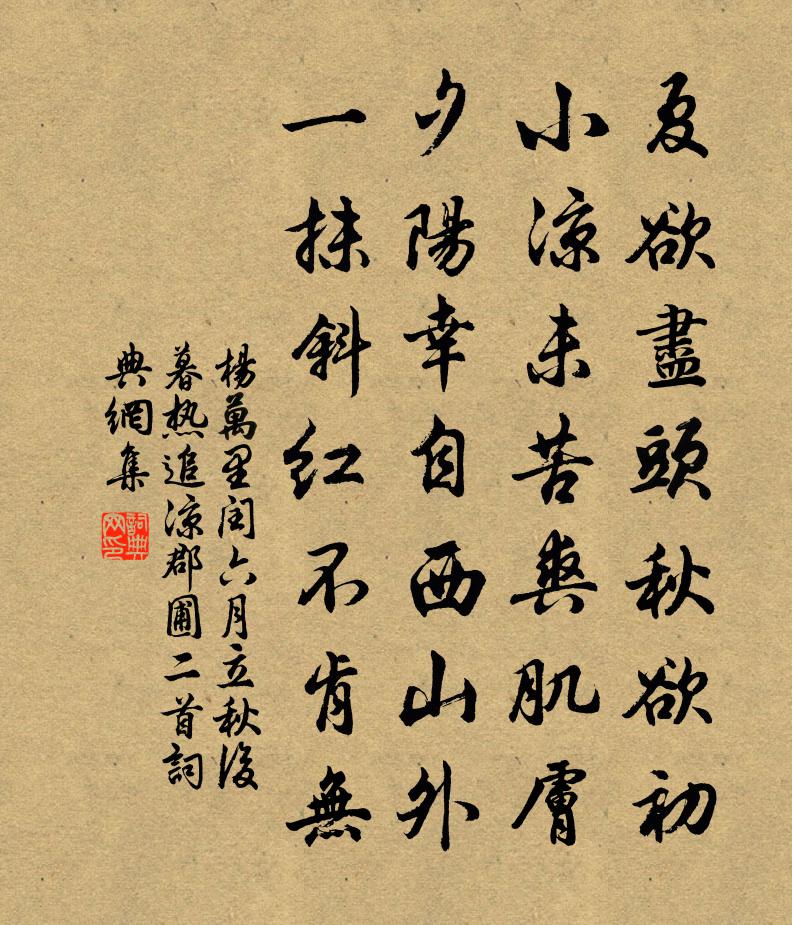 夏欲盡頭秋欲初
小涼未苦爽肌膚
夕陽幸自西山外
一抹斜紅不肯無
楊萬里閏六月立秋後
暮热追涼郡圃二首詞
典網集
詞典
网印